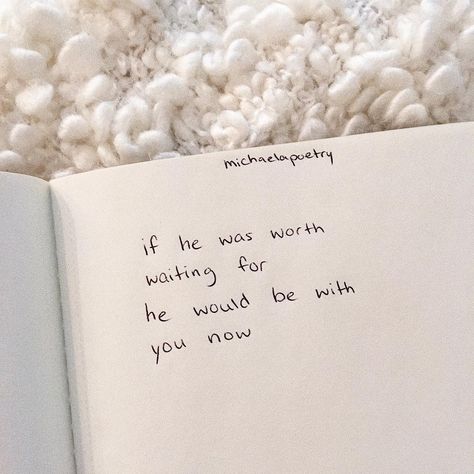 michaelapoetry
if he was worth
waiting for
he would be with
you now